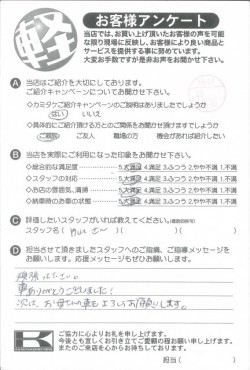 軽
お客様アンケート
当店では、お買い上げ頂いたお客様の声を可能
な限り現場に反映し、お客様により良い商品と
サービスを提供する事に努めています。
大変お手数ですが是非お声をお聞かせ下さい。
A 当店はご紹介を大切にしております。
ご紹介キャンペーンについてお聞かせ下さい。
◇カミタケご紹介キャンペーンのご説明はありましたでしょうか
はい いいえ
◇具体的にご紹介頂ける方とのご関係をお聞かせ頂けますでしょうか
ご親戚 ご友人 職場の方 機会があれば紹介したい
B 当店を実際にご利用になった印象をお聞かせ下さい。
◇総合的な満足度 5.大満足 4.満足 3.ふつう 2.やや不満 1.不満
◇スタッフの対応 5.大満足 4.満足 3.ふつう 2.やや不満 1.不満
◇お店の雰囲気、清掃 5.大満足 4.満足 3.ふつう 2.やや不満 1.不満
◇納車時のお車の状態 5.大満足 4.満足 3.ふつう 2.やや不満 1.不満
C 評価したいスタッフがいれば教えてください。(複数回答可)
スタッフ名( さん )
D 担当させて頂きましたスタッフへのご指摘、ご指導メッセージを
お願いします。応援メッセージもぜひお願いします。
頑張 ください。
車ありがとうございました!
次は、お母さんの車もよろしくお願いします。
K
ご協力に心よりお礼を申し上げます。
今後とも宜しくお引き立てご愛顧の程お願い申し上げます。
またのご来店を心からお待ちしております。
担当( )